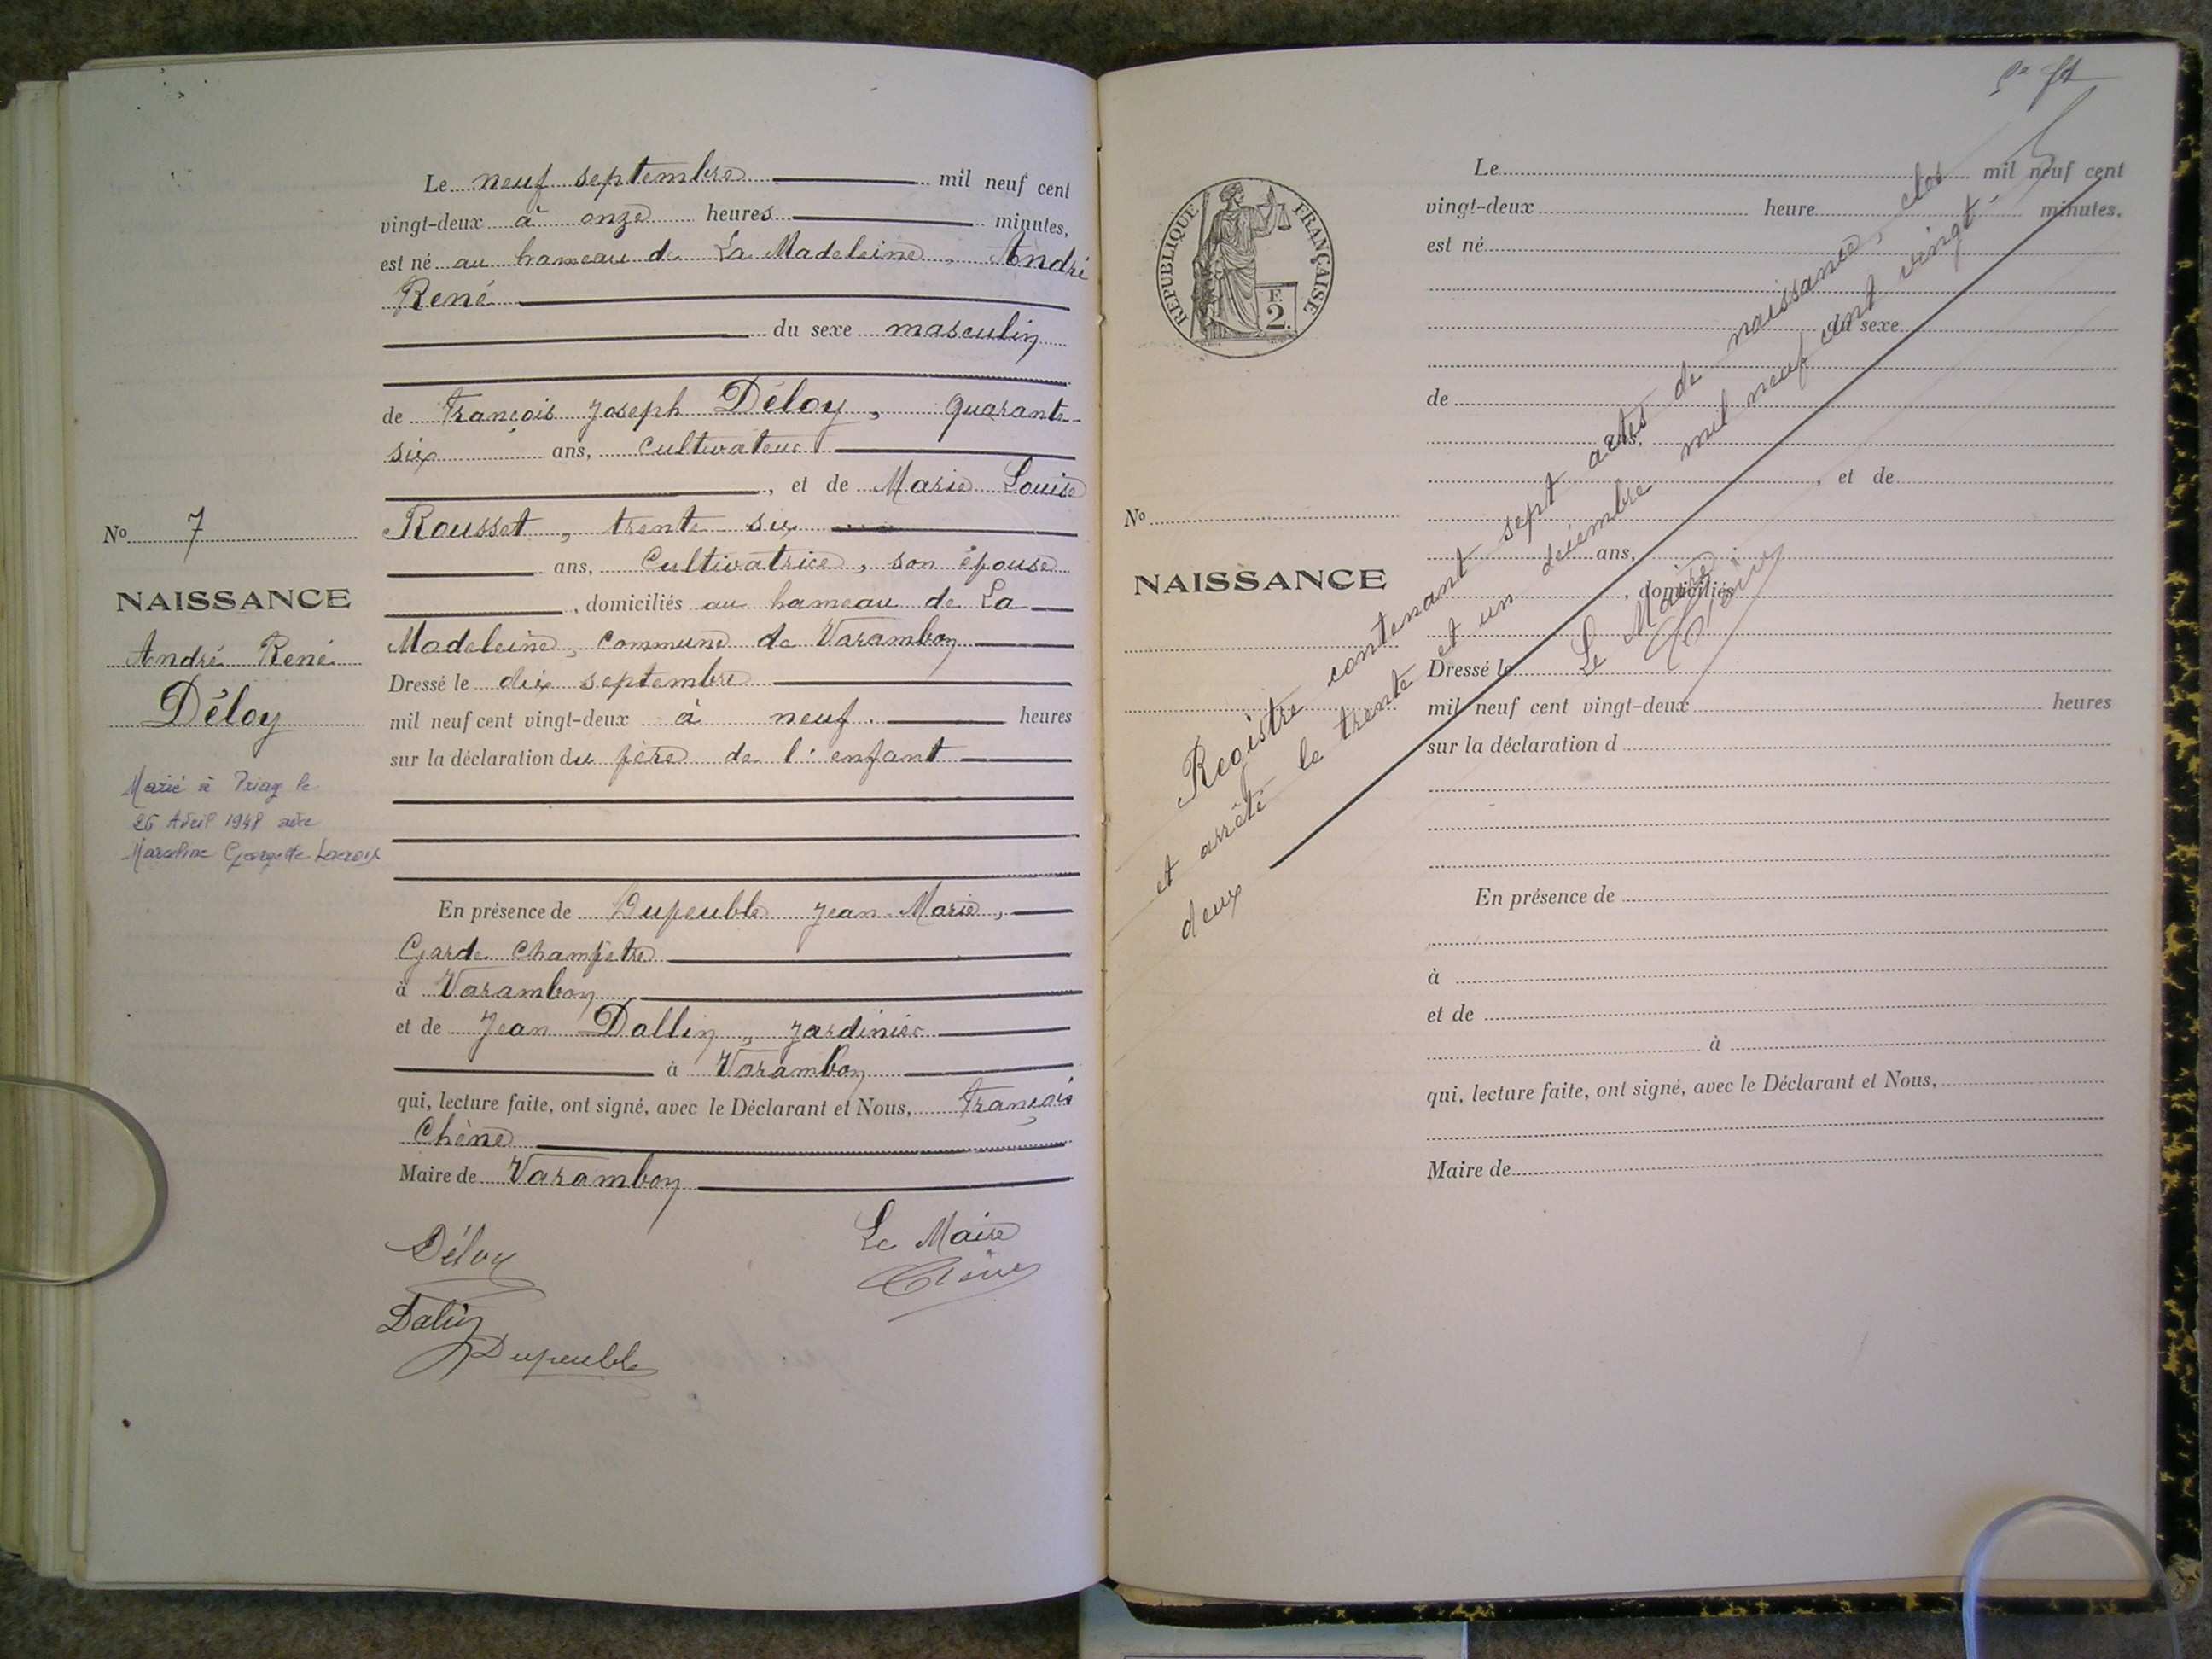 Le neuf septembre mil neuf cent
vingt-deux à onze heures minutes,
est né au hameau de La Madeleine, André
René
du sexe masculin
de François Joseph Déloy, quarante-
six ans, cultivateur
, et de Marie Louise
Rousset, trente six
ans, Cultivatrice, son épouse
, domiciliés au hameau de La
Madeleine, commune de Varambon
Dressé le dix septembre
mil neuf cent vingt-deux à neuf heures
sur la déclaration du père de l'enfant
En présence de Dupeuble Jean Marie,
Garde Champêtre
à Varambon
et de Jean Dallin, jardinier
à Varambon
qui, lecture faite, ont signé, avec le Déclarant et Nous, François
Chêne
Maire de Varambon
Déloy
Le Maire
Chêne
Dalin
Dupeuble
No 7
NAISSANCE
André René
Déloy
Marié à Priay le
26 Avril 1948 avec
Marceline Georgette Lacroix
RÉPUBLIQUE FRANÇAISE
F.
2.
No
NAISSANCE
Le mil neuf cent
vingt-deux heure minutes,
est né
du sexe
de
ans,
, et de
ans,
, domiciliés
Dressé le
mil neuf cent vingt-deux heures
sur la déclaration d
En présence de
à
et de
à
qui, lecture faite, ont signé, avec le Déclarant et Nous,
Maire de
Registre contenant sept actes de naissance, clos
et arrêté le trente et un décembre mil neuf cent vingt-
deux
Le Maire
Chêne